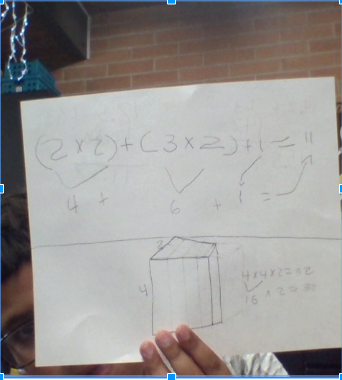 (2x2)+(3x2)+1=11
4 + 6 + 1 =
2
4
4x4x2=32
16 x 2 = 32